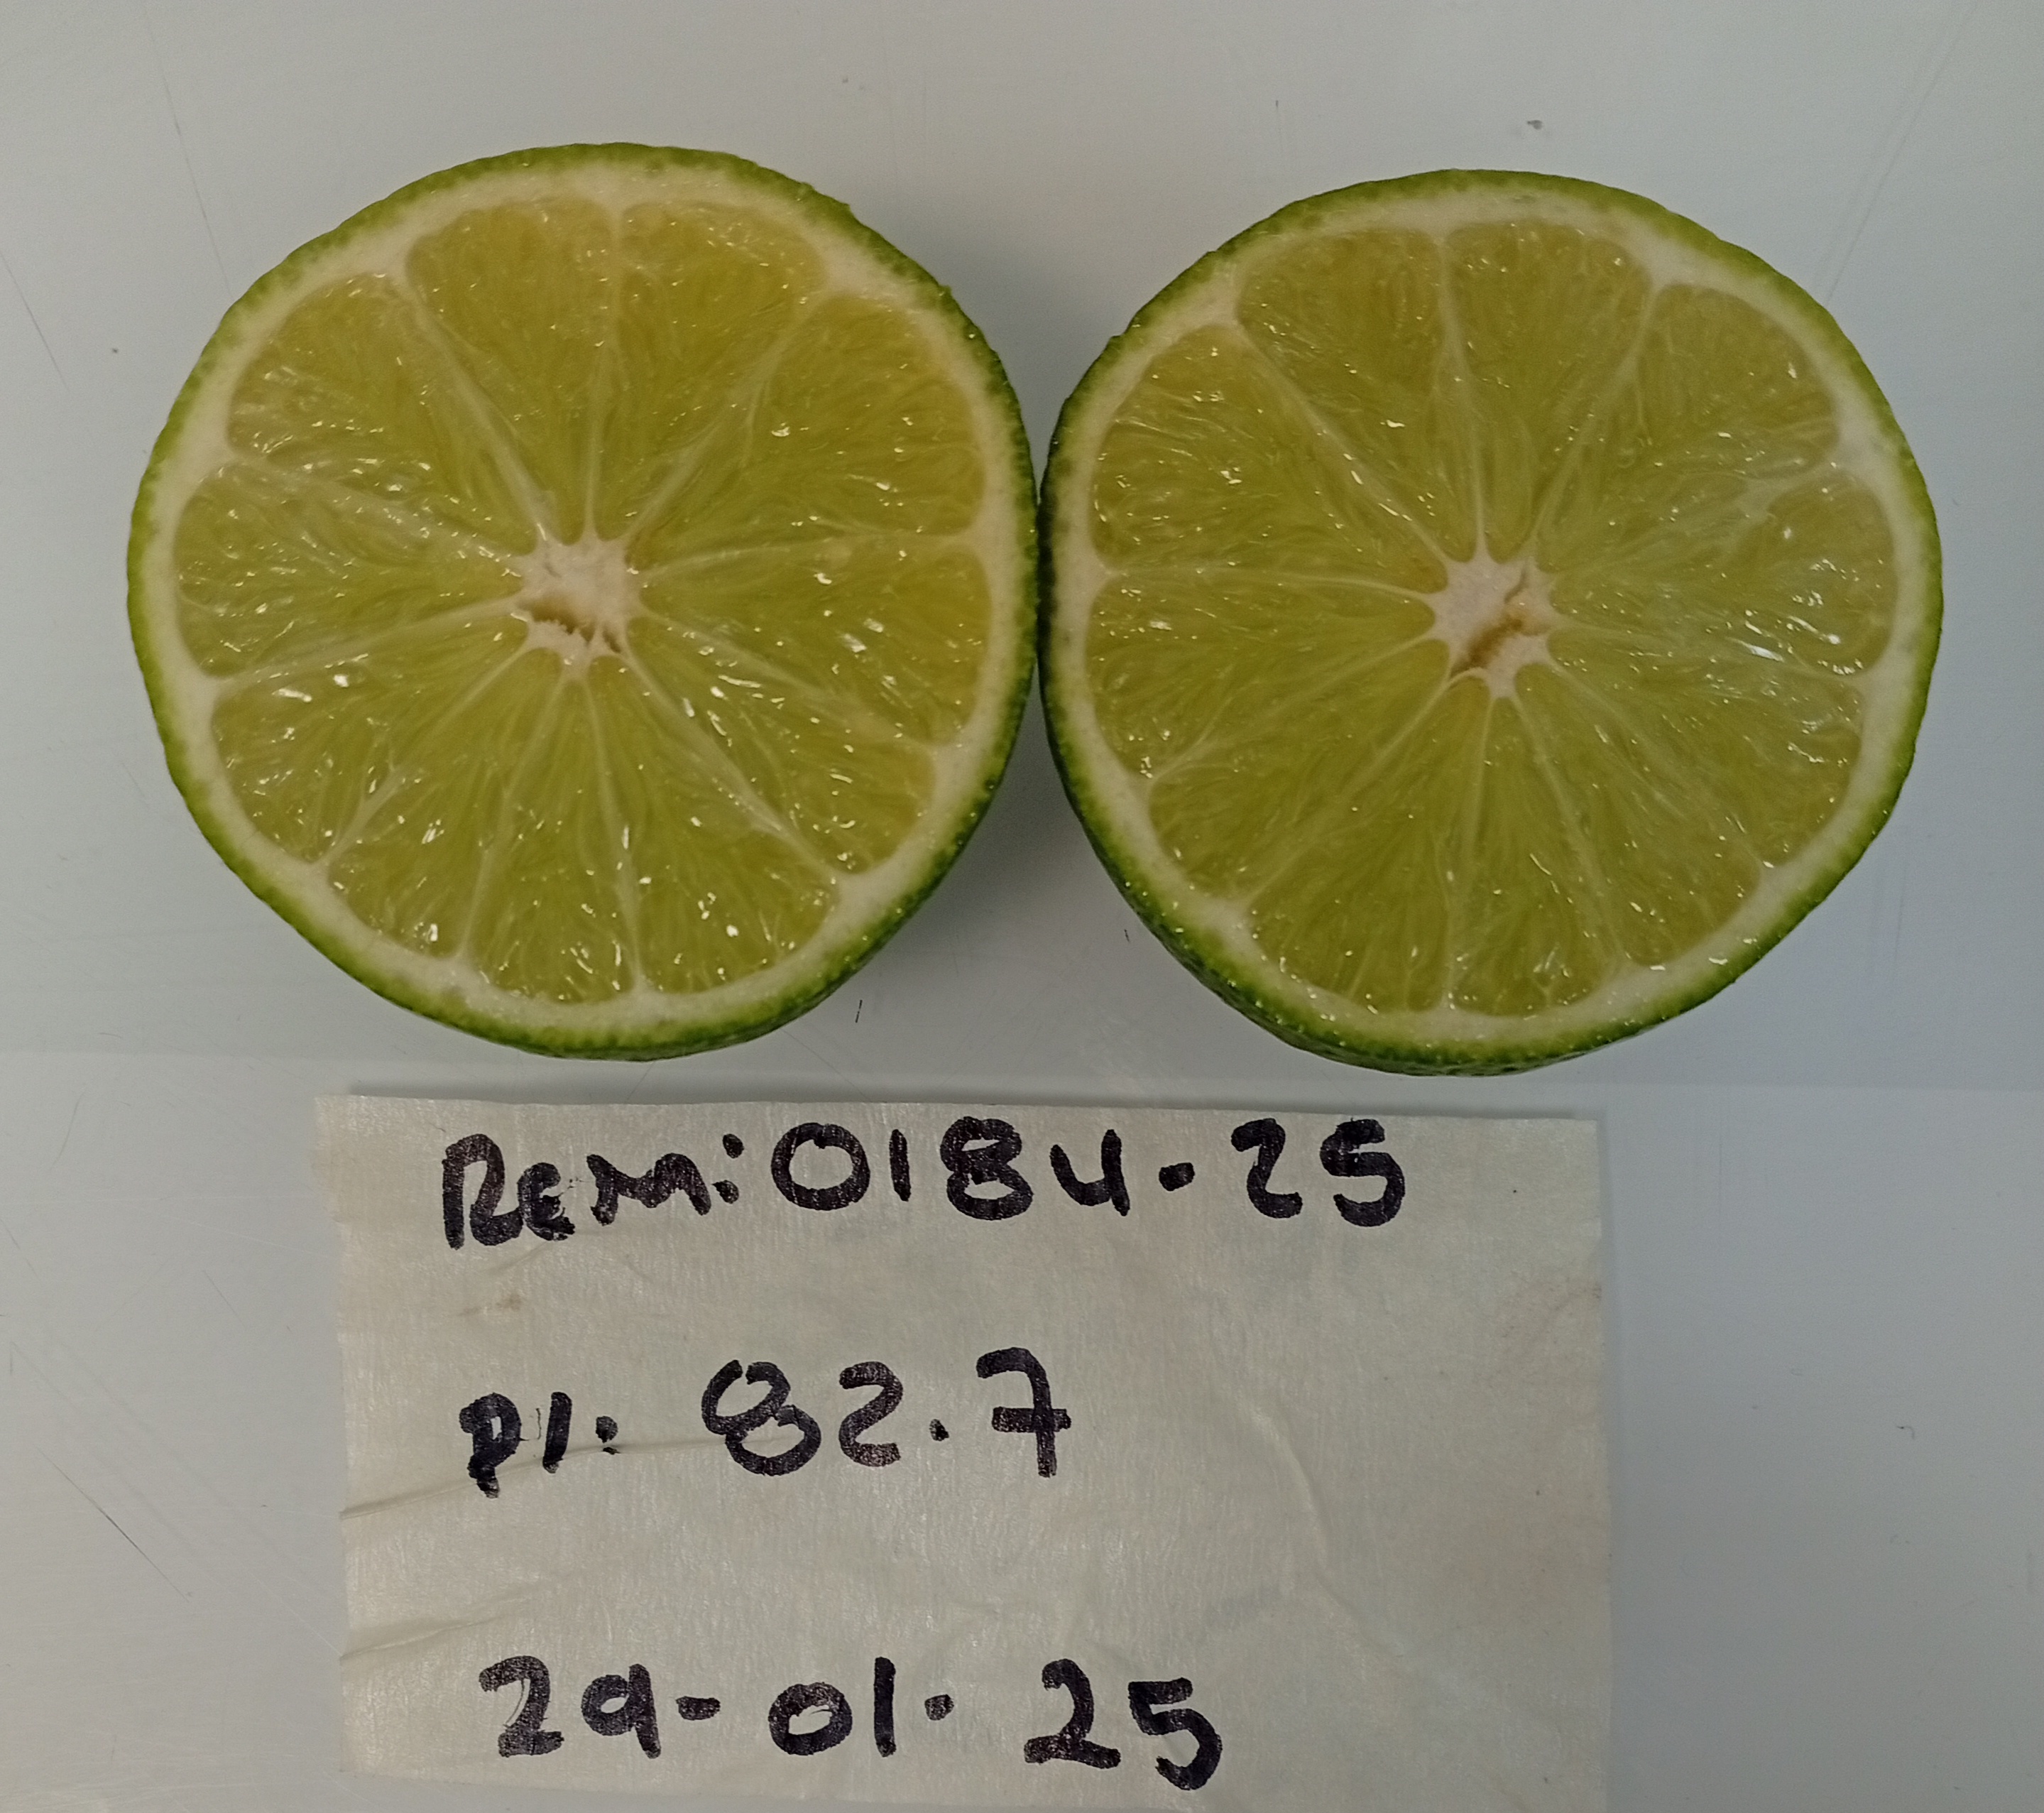 Rem: 0184-25
PI: 82.7
29-01-25